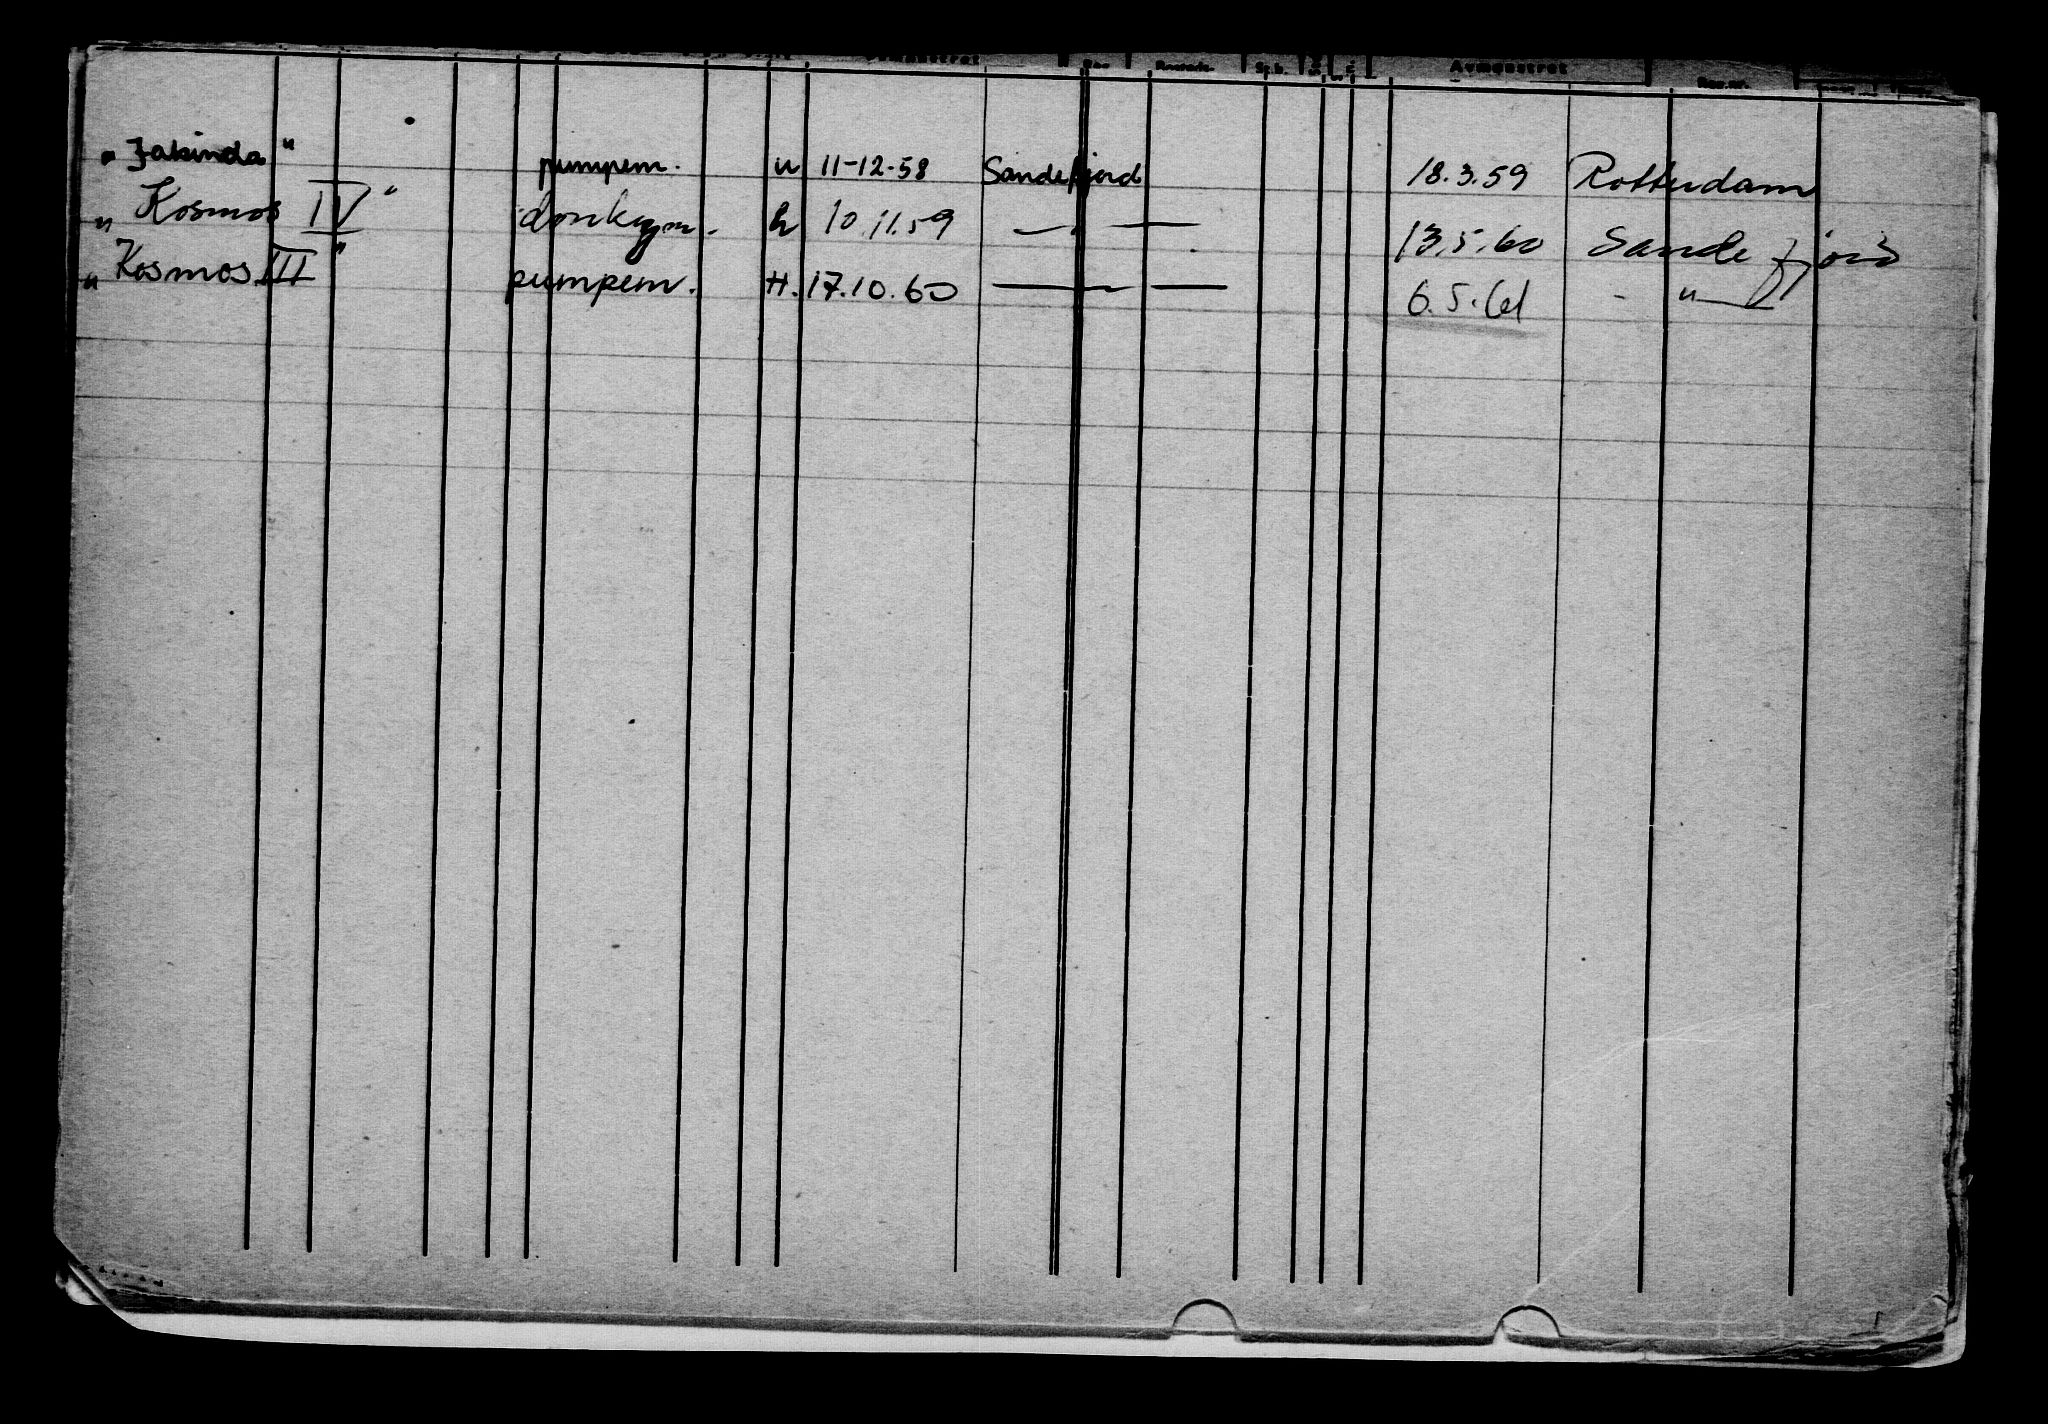 Avmønstret
„Jakinda" pumpem. u 11-12-58 Sandefjord 18.3.59 Rotterdam
„Kosmos IV" donkeym. h 10.11.59 — " — 13.5.60 Sandefjord
„Kosmos III" pumpem. H. 17.10.60 — — 6.5.61 - " —